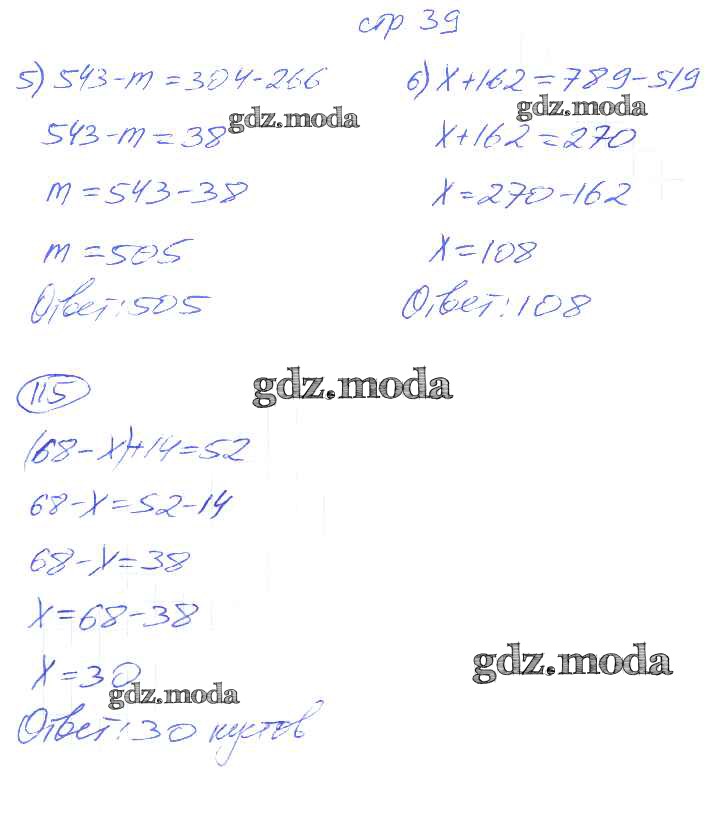 стр 39
5) 543-m=304-266
543-m=38
m=543-38
m=505
Ответ: 505
6) x+162=789-519
x+162=270
x=270-162
x=108
Ответ: 108
gdz.moda
gdz.moda
115
gdz.moda
(68-x)+14=52
68-x=52-14
68-x=38
x=68-38
x=30
gdz.moda
gdz.moda
Ответ: 30 кустов